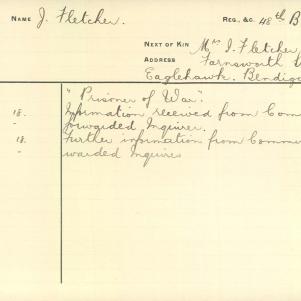 NAME J. Fletcher. REG., &C. 48th B
NEXT OF KIN Mrs I. Fletcher
Farnsworth
Eaglehawk. Bendigo
"Prisoner of War".
18. Information received from Com
" forwarded Inquirer.
18. Further information from Comm
" warded Inquires